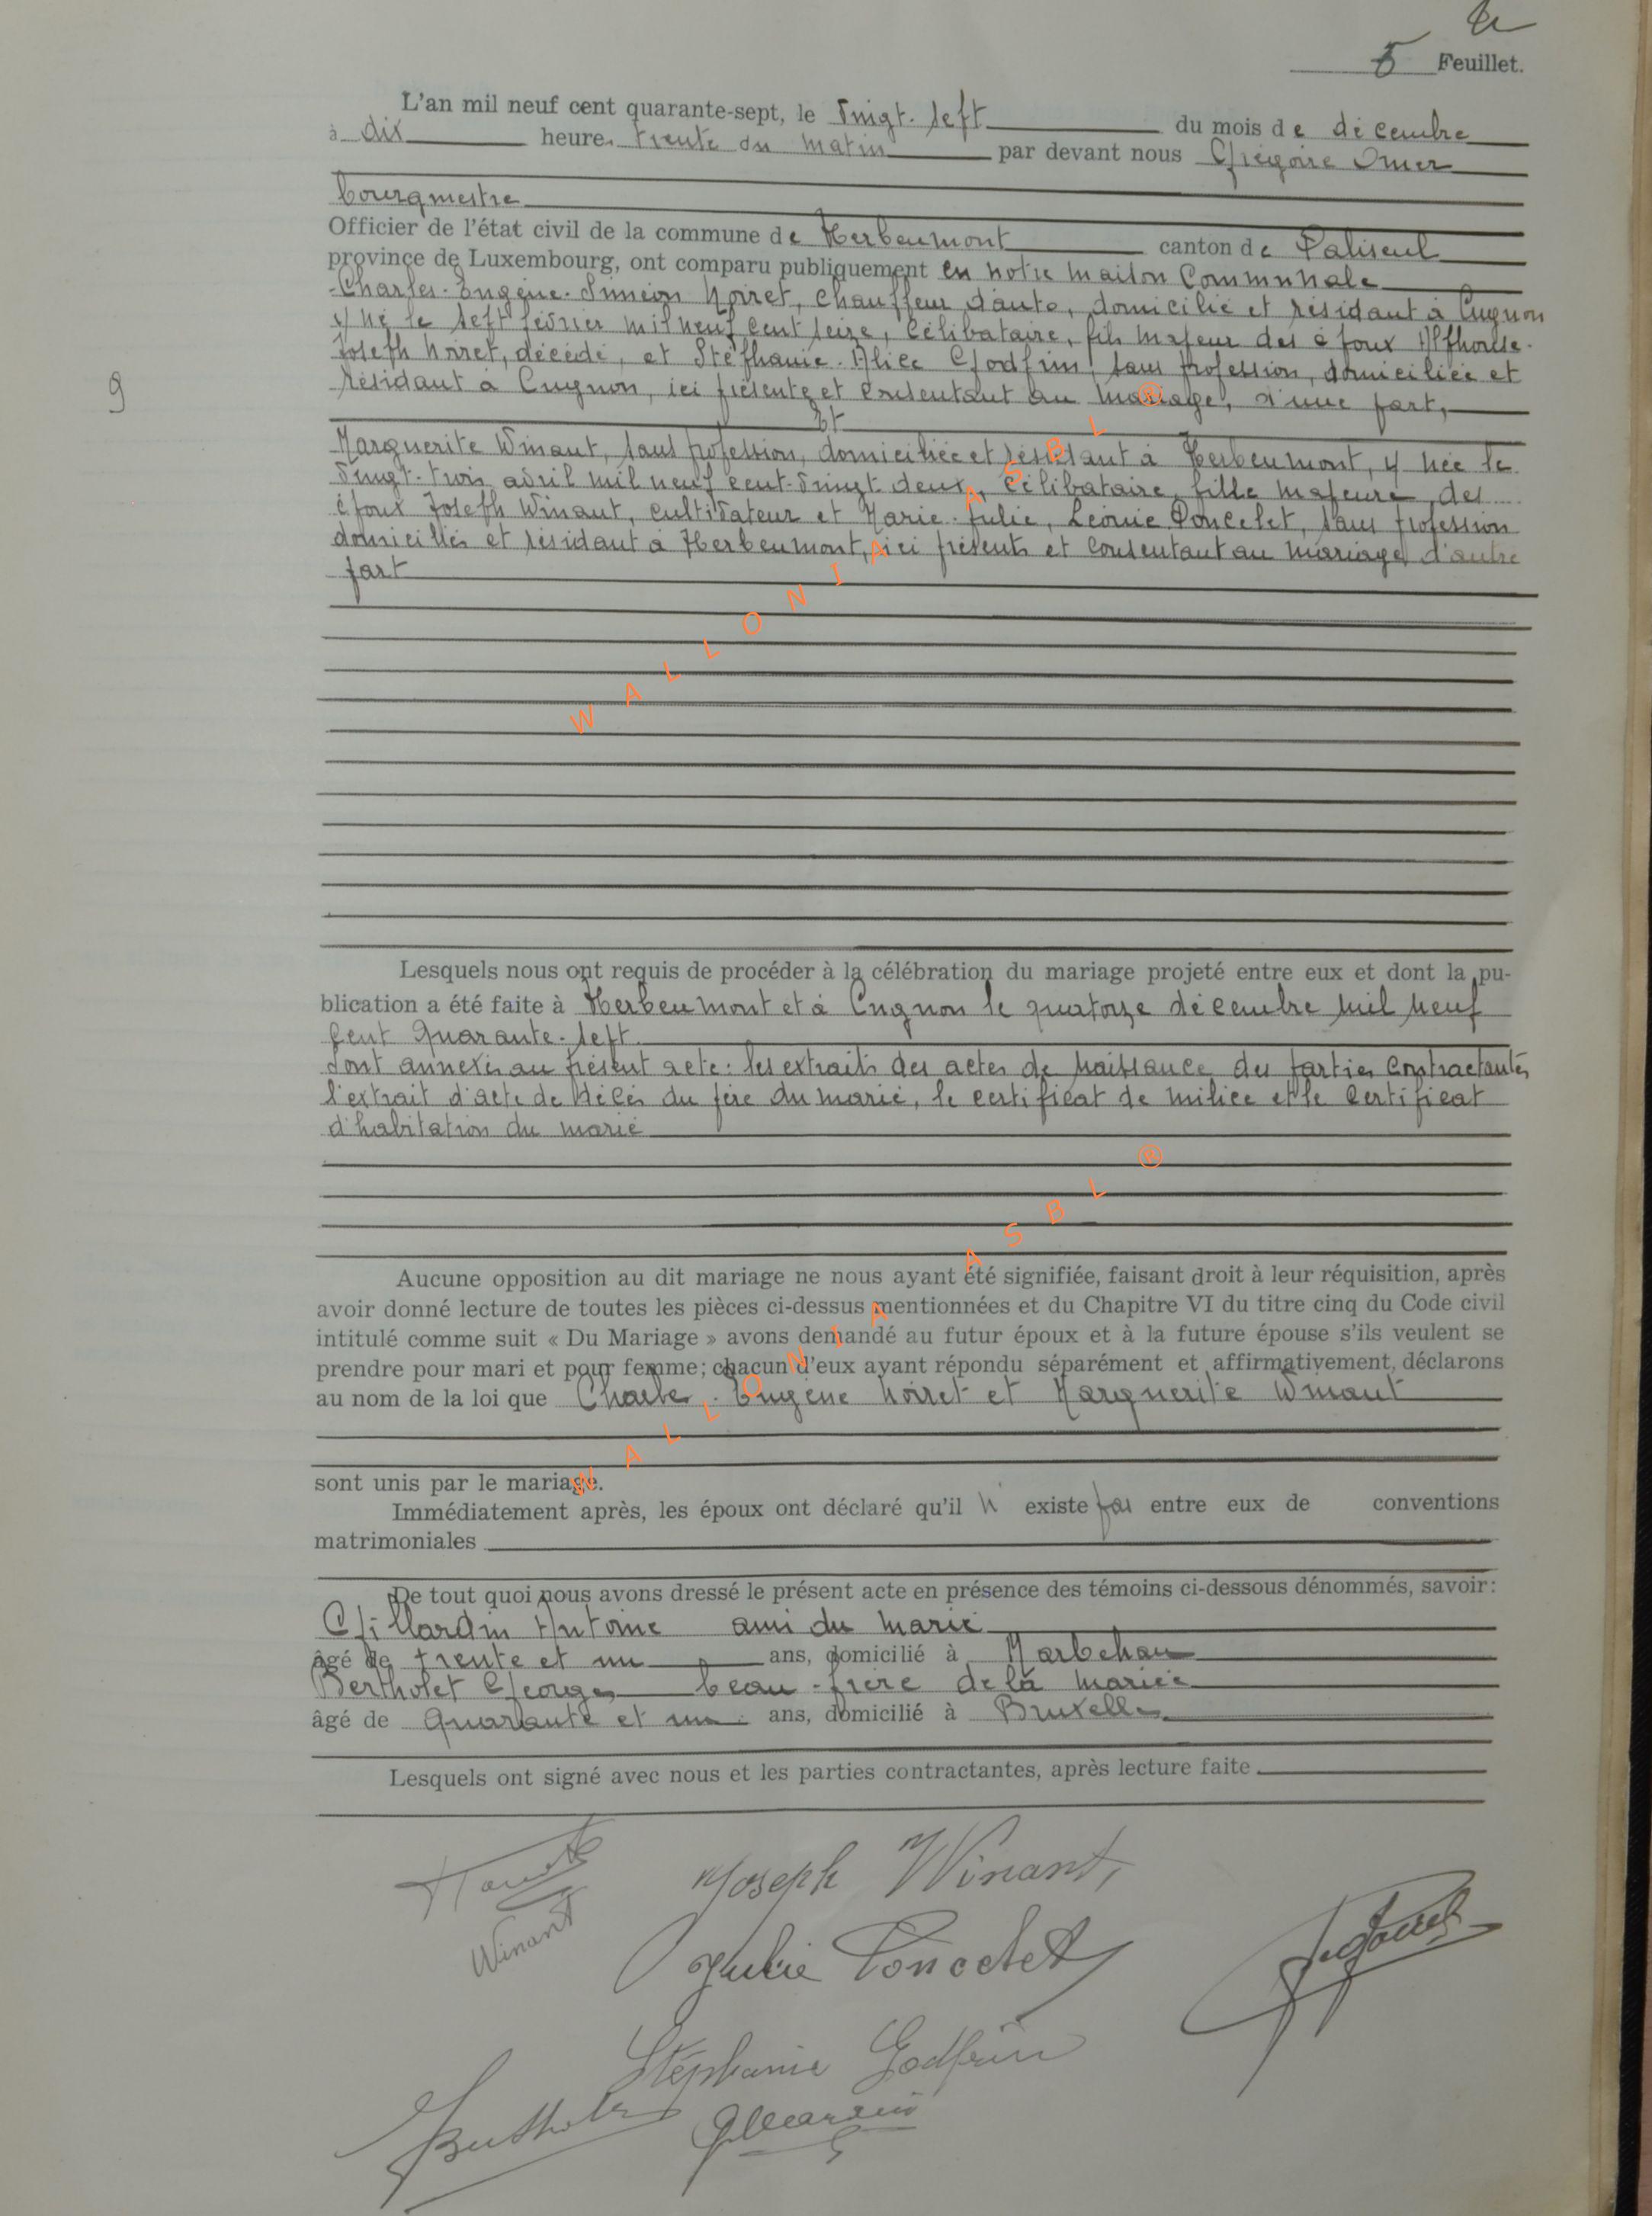 5 Feuillet.
L'an mil neuf cent quarante-sept, le vingt-sept du mois de décembre
à dix heures trente du matin par devant nous Grégoire Omer
bourgmestre
Officier de l'état civil de la commune de Herbeumont canton de Paliseul
province de Luxembourg, ont comparu publiquement en notre maison Communale
Charles-Eugène-Siméon Noiret, chauffeur d'auto, domicilié et résidant à Cugnon
y né le sept février mil neuf cent seize, célibataire, fils majeur des époux Alphonse-
Joseph Noiret, décédé, et Stéphanie-Alice Godfrin, sans profession, domiciliée et
résidant à Cugnon, ici présente et consentant au mariage, d'une part,
9
Et
Marguerite Winant, sans profession, domiciliée et résidant à Herbeumont, y née le
vingt-trois avril mil neuf cent-vingt-deux, célibataire, fille majeure des
époux Joseph Winant, cultivateur et Marie-Julie, Léonie Poncelet, sans profession
domiciliés et résidant à Herbeumont, ici présents et consentant au mariage d'autre
part
Lesquels nous ont requis de procéder à la célébration du mariage projeté entre eux et dont la pu-
blication a été faite à Herbeumont et à Cugnon le quatorze décembre mil neuf
cent quarante-sept.
Sont annexés au présent acte: les extraits des actes de naissance des parties contractantes
l'extrait d'acte de décès du père du marié, le certificat de milice et le certificat
d'habitation du marié
Aucune opposition au dit mariage ne nous ayant été signifiée, faisant droit à leur réquisition, après
avoir donné lecture de toutes les pièces ci-dessus mentionnées et du Chapitre VI du titre cinq du Code civil
intitulé comme suit « Du Mariage » avons demandé au futur époux et à la future épouse s'ils veulent se
prendre pour mari et pour femme; chacun d'eux ayant répondu séparément et affirmativement, déclarons
au nom de la loi que Charles-Eugène Noiret et Marguerite Winant
sont unis par le mariage.
Immédiatement après, les époux ont déclaré qu'il n' existe pas entre eux de conventions
matrimoniales
De tout quoi nous avons dressé le présent acte en présence des témoins ci-dessous dénommés, savoir:
Gillardin Antoine ami du marié
âgé de trente et un ans, domicilié à Marbehan
Berthôlet Georges beau-frère de la mariée
âgé de quarante et un ans, domicilié à Bruxelles
Lesquels ont signé avec nous et les parties contractantes, après lecture faite
Joseph Winant,
Winant
Julie Poncelet
Stéphanie Godfrin
WALLONIA ASBL ®
WALLONIA ASBL ®